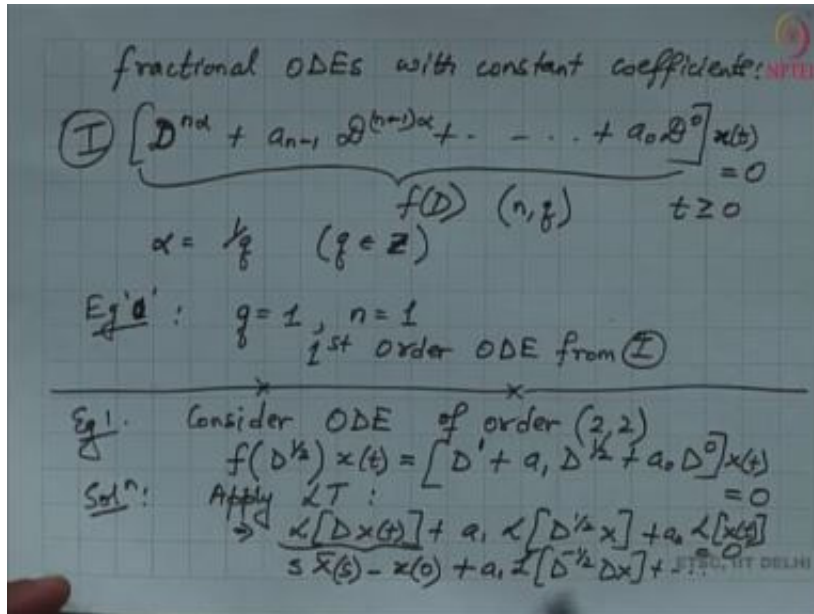 fractional ODEs with constant coefficients: NPTEL
Ⓘ [D^{nα} + a_{n-1} D^{(n-1)α} + . - . . + a_0 D^0] x(t)
= 0
f(D) (n,q) t ≥ 0
α = 1/q (q ∈ Z)
Eg'0' : q = 1, n = 1
1st order ODE from Ⓘ
Eg 1. Consider ODE of order (2,2)
f(D^{1/2}) x(t) = [D^1 + a_1 D^{1/2} + a_0 D^0] x(t)
= 0
Solⁿ: Apply LT :
⇒ L[Dx(t)] + a_1 L[D^{1/2} x] + a_0 L[x(t)]
= 0
s X̄(s) - x(0) + a_1 L[D^{-1/2} Dx] + ...
ETSC, IIT DELHI